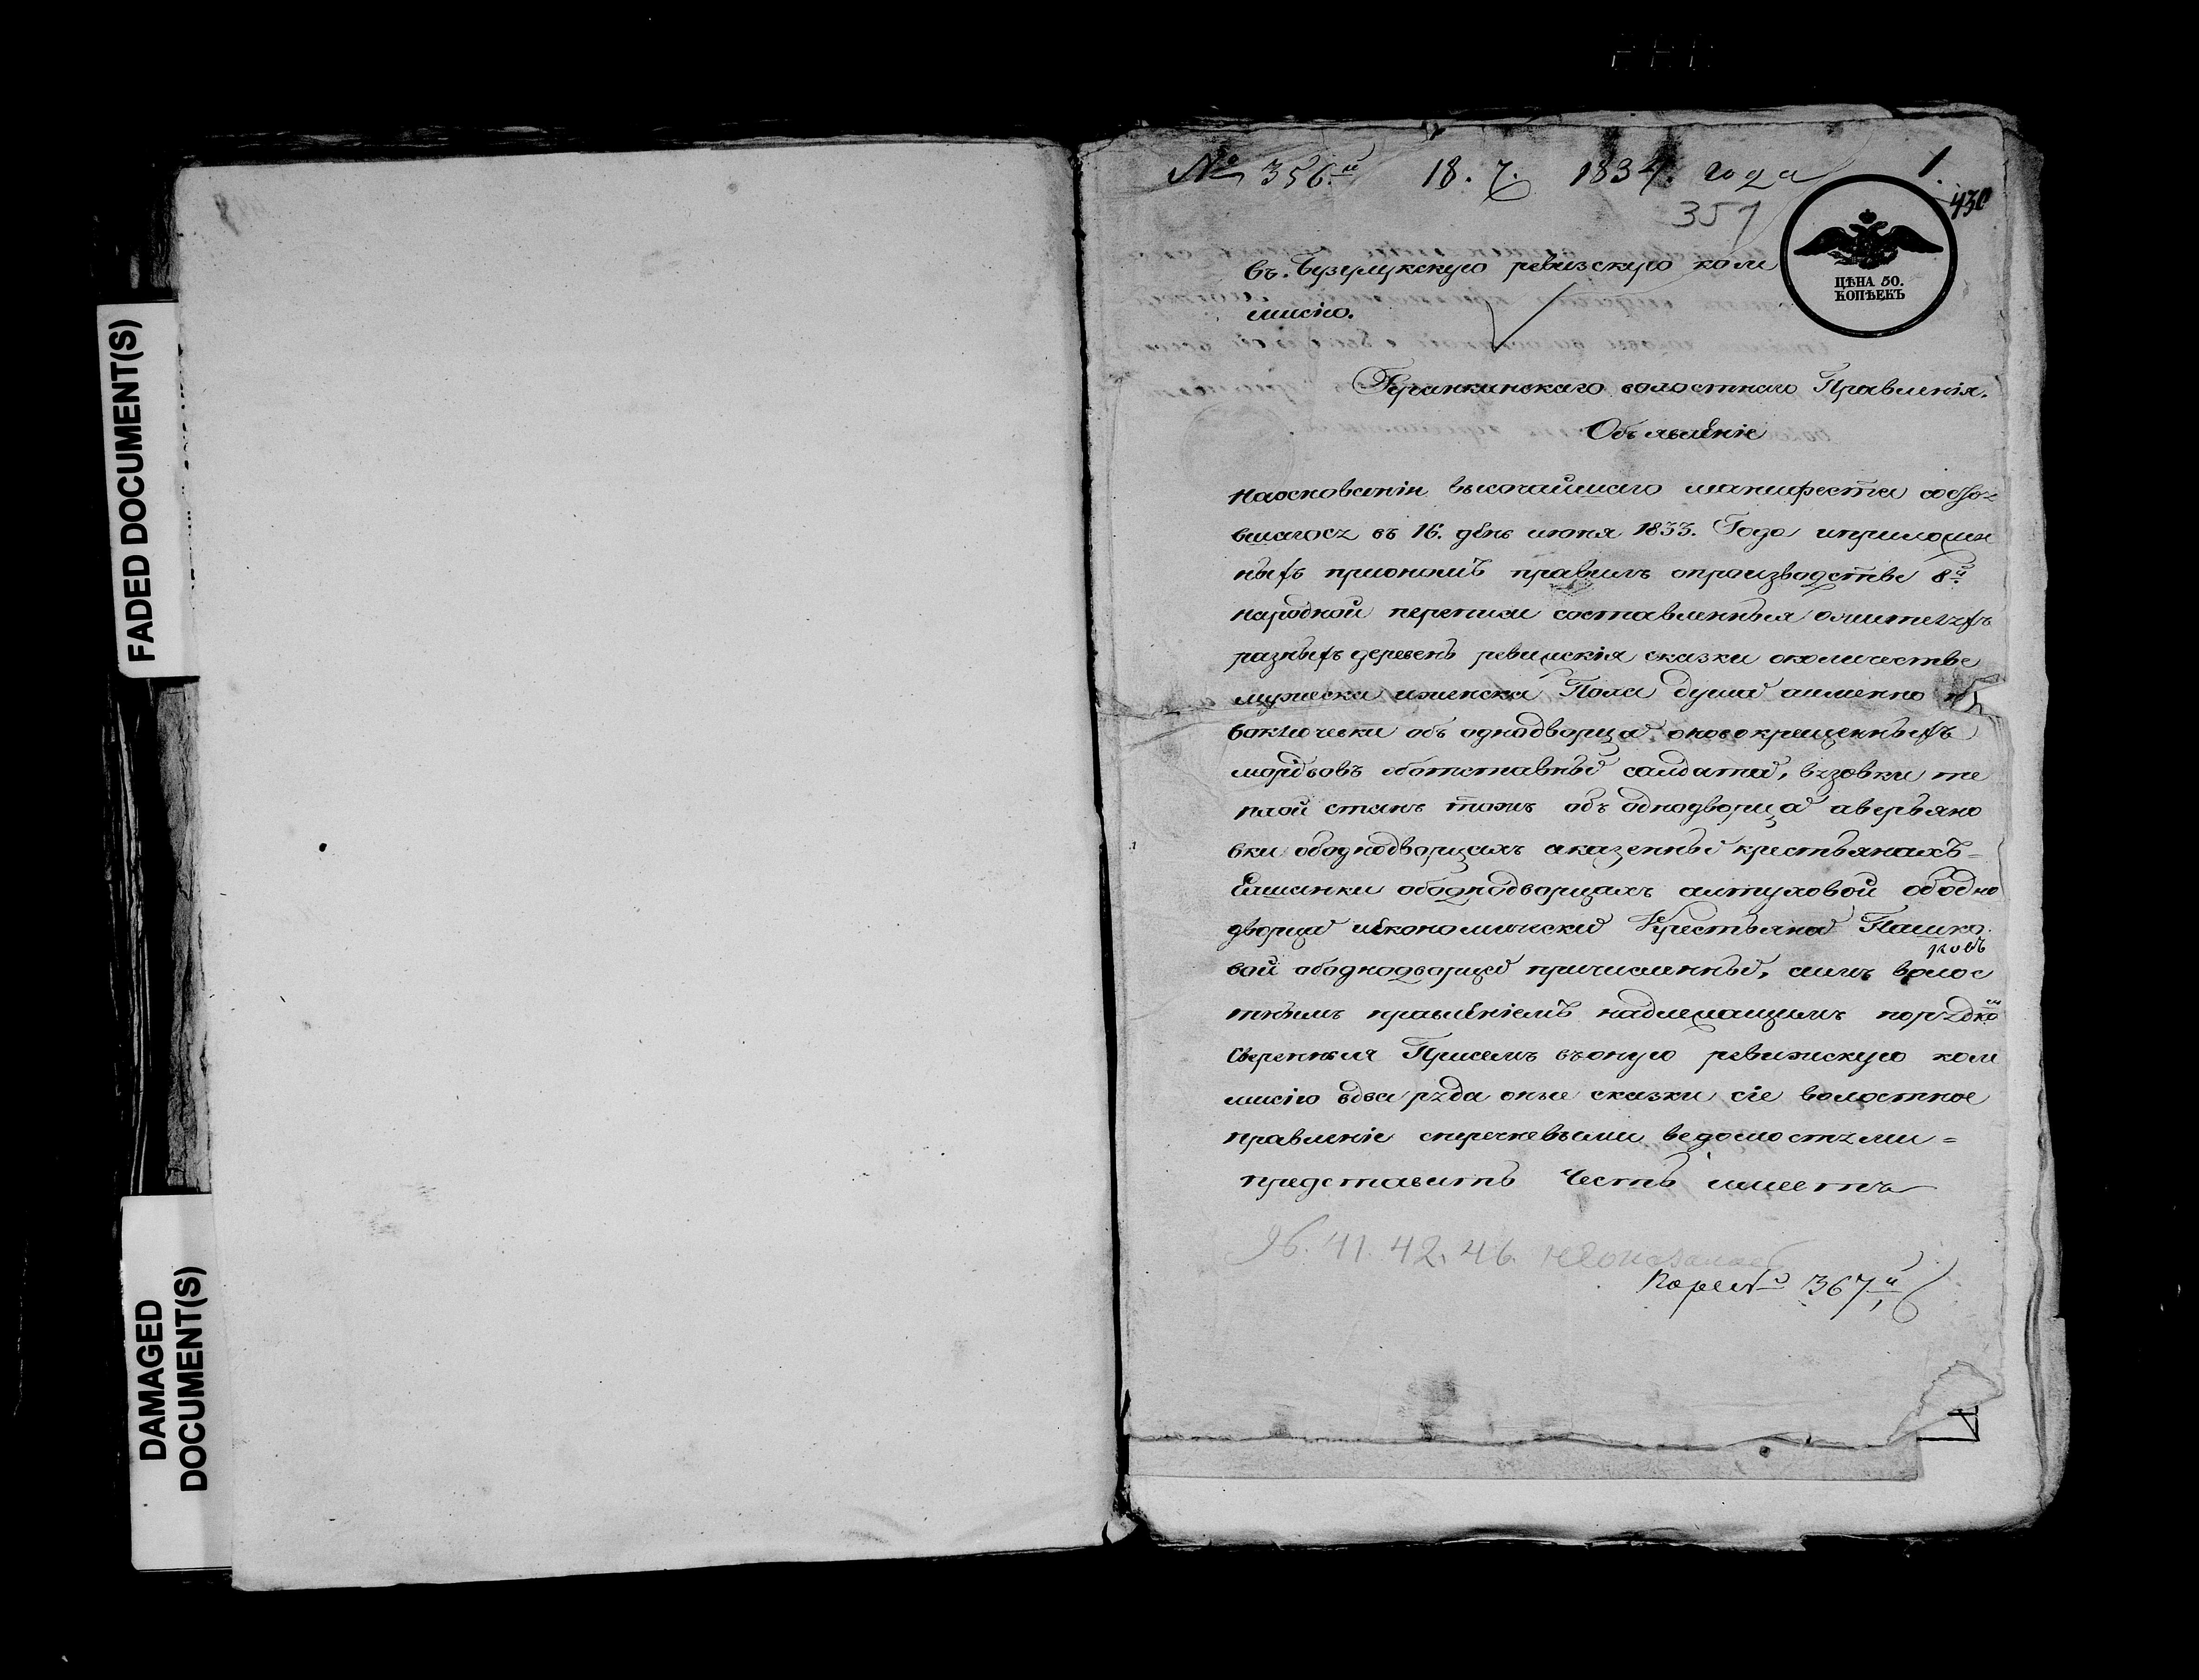 FADED DOCUMENT(S)
DAMAGED
DOCUMENT(S)
№ 356.й 18. 7. 1834. года 1.
430
357
ЦѢНА 50.
КОПѢЕКЪ
въ. Бузулукскую ревизскую ком
мисію.
волостнаго Правленія.
Объявленіе
наосновании высочайшаго манифеста
въ 16. день июня 1833. Года иприложен
ныхъ приономъ правилъ опроизводстве 8й
народной переписи составленныя ожителяхъ
разныхъ деревень ревижскія сказки околичестве
мужеска иженска Пола душъ аименно
объ однодворцах оновокрещенныхъ
мордвовъ оботставных салдатах,
стань тожъ объ однодворцах аверьяно
вки ободнодворцахъ аказенных крестьянахъ=
Елшанки ободнодворцахъ алтуховой ободно
дворцах иекономических Крестьянах Пашко.
вой ободнодворцах причисленных, симъ волос
тнымъ правлениемъ надлежащимъ порядком
сверенныя Присемъ въоную ревижскую ком
мисію вдва ряда оные сказки сіе волостное
правление сперечневыми ведомостями=
представить Честь имеетъ
96. 41. 42. 46. неоказалось
367й